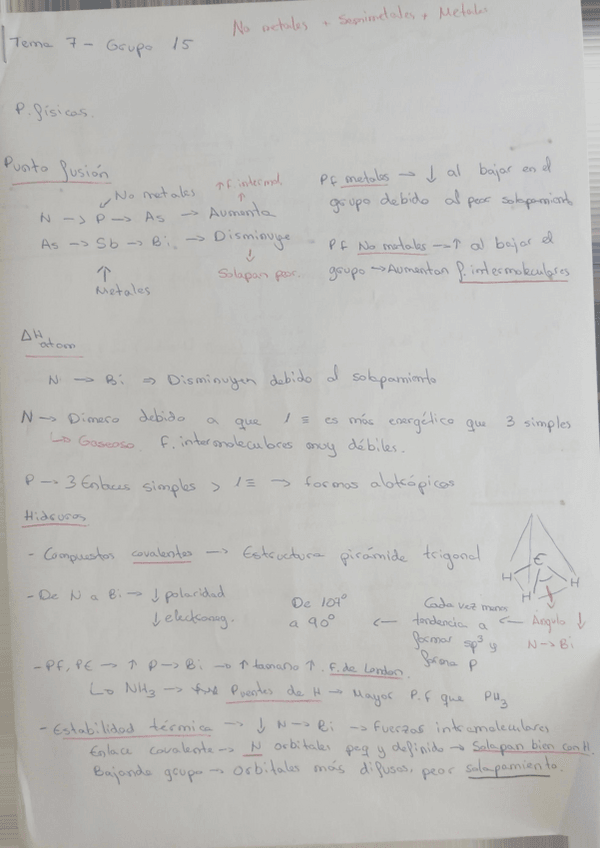 No metales + Semimetales + Metales
Tema 7 - Grupo 15
P. físicas.
Punto fusión
↙No metales
↑F. intermol.
↑
N → P → As → Aumenta
As → Sb → Bi → Disminuye
↑
Metales
↓
Solapan peor.
Pf metales → ↓ al bajar en el
grupo debido al peor solapamiento
Pf No metales → ↑ al bajar el
grupo → Aumentan f. intermoleculares
ΔH atom
N → Bi ⇒ Disminuyen debido al solapamiento
N → Dimero debido a que 1 ≡ es más energético que 3 simples
↳ Gaseoso. F. intermoleculares muy débiles.
P → 3 Enlaces simples > 1 ≡ → formas alotrópicas
Hidruros
- Compuestos covalentes → Estructura pirámide trigonal
E
H H H
- De N a Bi → ↓ polaridad
↓ electroneg.
De 107°
a 90°
←
Cada vez menor
tendencia a
formar sp³ y
forma P
←
Ángulo ↓
N → Bi
- PF, PE → ↑ P → Bi → ↑ tamaño ↑. F. de London.
↳ NH₃ → Puentes de H → Mayor P.f que PH₃
- Estabilidad térmica → ↓ N → Bi → Fuerzas intramoleculares
Enlace covalente → N orbitales peq y definido → Solapan bien con H.
Bajando grupo → Orbitales más difusos, peor solapamiento.